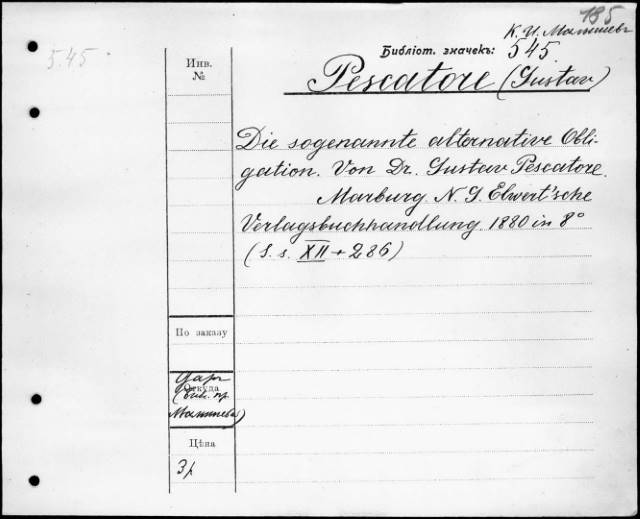 185
К. И. Малышевъ
5.45
Библіот. значекъ: 545
Инв.
№
Pescatore (Gustav)
Die sogenannte alternative Obli-
gation. Von Dr. Gustav Pescatore.
Marburg. N. G. Elwert'sche
Verlagsbuchhandlung. 1880 in 8°
(S. s. XII + 286)
По заказу
Даръ
Откуда
(библ. пр.
Малышева)
Цѣна
3 р.